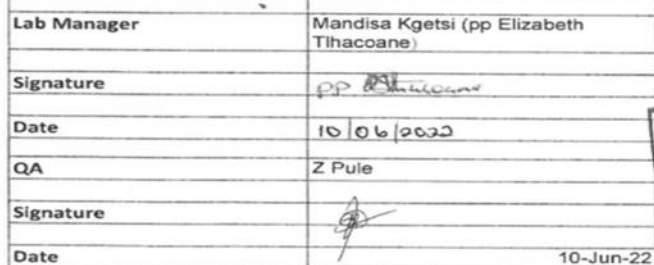 Lab Manager Mandisa Kgetsi (pp Elizabeth
Tlhacoane)
Signature pp
Date 10/06/2022
QA Z Pule
Signature
Date 10-Jun-22